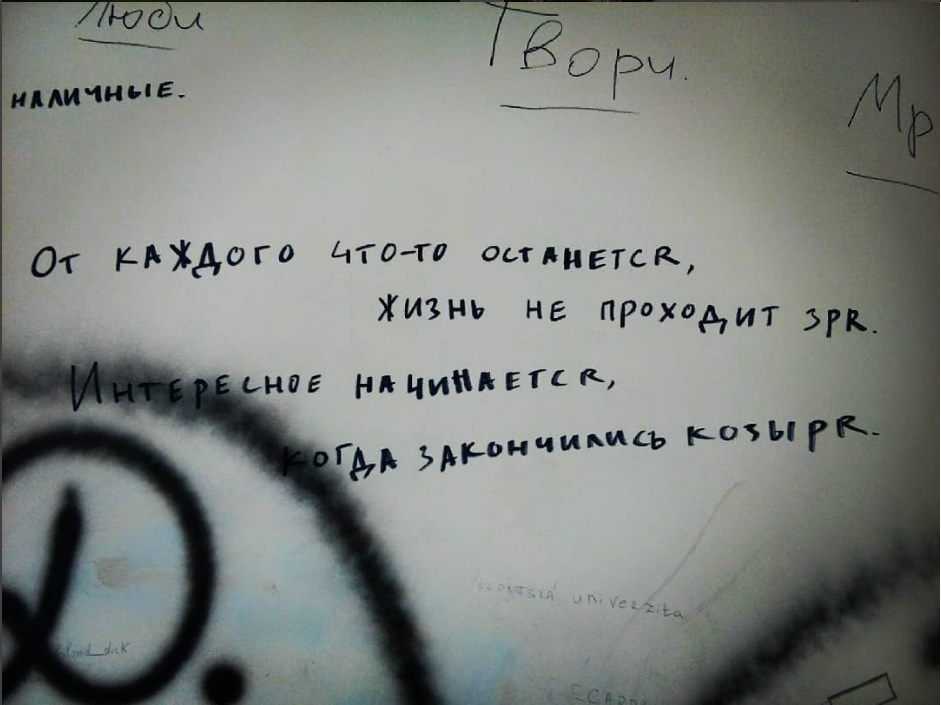 Люди
Твори.
НАЛИЧНЫЕ.
Мр
От КАЖДОГО ЧТО-ТО ОСТАНЕТСЯ,
ЖИЗНЬ НЕ ПРОХОДИТ ЗРЯ.
ИНТЕРЕСНОЕ НАЧИНАЕТСЯ,
КОГДА ЗАКОНЧИЛИСЬ КОЗЫРЯ.
univerzita